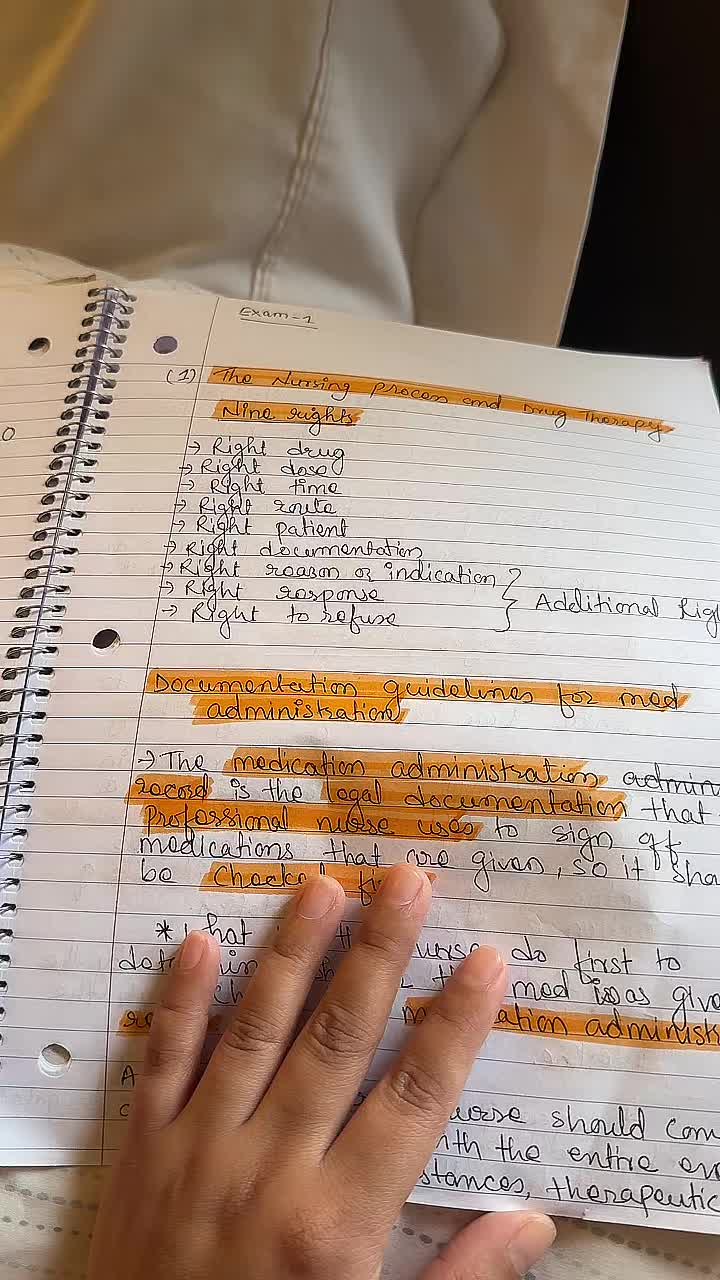 Exam-1
(1) The Nursing process and Drug Therapy
Nine rights
→ Right drug
→ Right dose
→ Right time
→ Right route
→ Right patient
→ Right documentation
→ Right reason or indication
→ Right response
→ Right to refuse
} Additional Rig
Documentation guidelines for med
administration
→ The medication administration admin
record is the legal documentation that
Professional nurse uses to sign off
medications that are given, so it sha
be
* do first to
med is as give
administ
A
should com
the entire
therapeutic
0